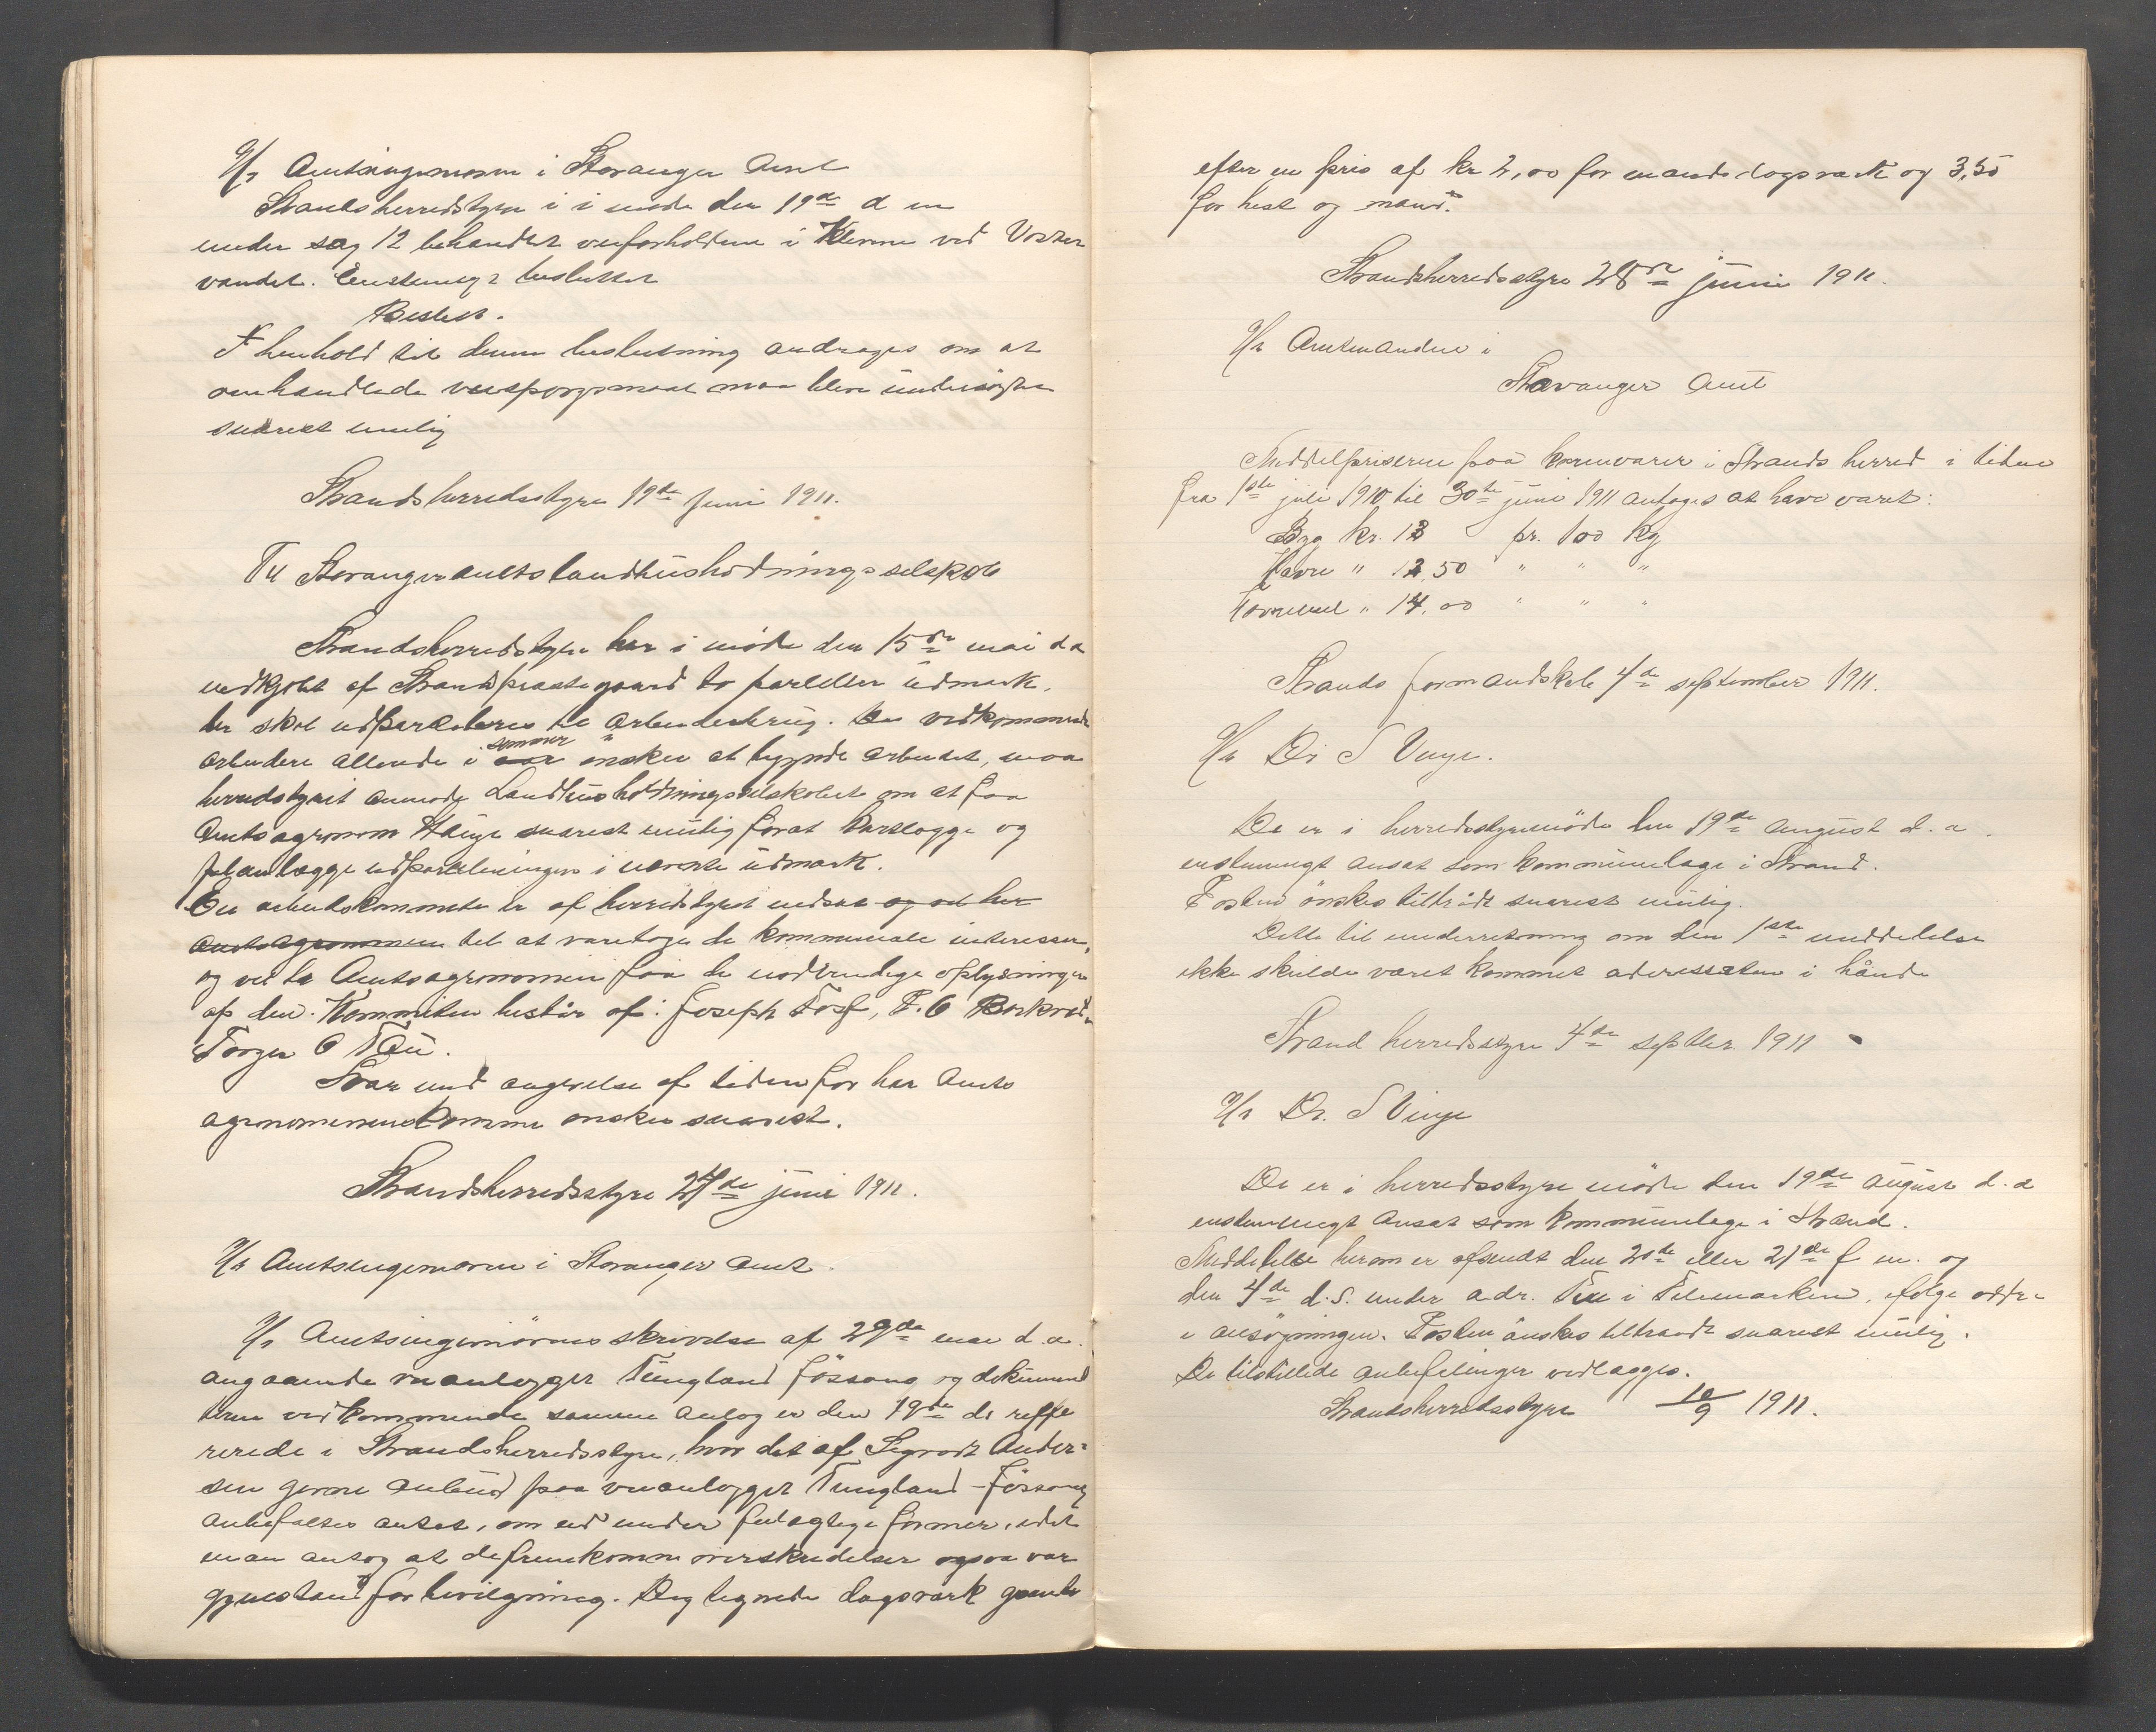 Hr Amtsingeniøren i Stavanger Amt
Strandsherredstyre i møde den 19de d m
under sag 12 behandlet veiforholdene i ved Vostervandet. Enstemigt besluttet
Beslut.
I henhold til denne beslutning andrages om at
omhandlede veispørgsmaal maa blive undersøgte
snarest mulig
Strandsherredsstyre 19de Juni 1911.
Til Stavanger amts landhusholdningsselskab
Strandsherredsstyre har i møde den 15de mai d a
indkjøbt af Strand præstegaard to parceller udmark,
der skal udparceleres til arbeiderbrug. Da vedkommende
arbeidere allerede i sommer ønsker at begynde arbeidet, maa
herredstyret anmode Landhusholdningsselskabet om at faa
Amtsagronom Hauge snarest mulig forat kartlægge og
planlægge udparceleringen i nævnte udmark.
En arbeidskommite er af herredstyret nedsat og vil her
Amtsagronomen til at varetage de kommunale interesser,
og vil da Amtsagronomen faa de nødvendige oplysninger
af den. Kommiten består af: Joseph Fosf, T. O Barkved,
Torger O Tau.
Svar med angivelse af tiden for har Amts
agronomen komme ønskes snarest.
Strandsherredsstyre 27de juni 1911.
Hr Amtsingeniøren i Stavanger amt.
Hr Amtsingeniørens skrivelse af 29de mai d.a.
angaaende veianlægget Tungland Fössang og dokumen
terne vedkommende samme anlæg er den 19de ds reffe
rerede i Strandsherredsstyre, hvor det af Sigvart Ander=
sen givne anbud paa veianlægget Tungland - Fössang
anbefaltes antat, om end under former, idet
man antog at de fremkomne overskridelser ogsaa var
gjenstand for bevilgning. Deg tegnede dagsværk
efter en pris af kr 2,00 for mands dagsværk og 3,50
for hest og mand.
Strandsherredsstyre 28de juni 1911.
Hr Amtmanden i
Stavanger Amt
Middelpriserne paa kornvarer i Strands herred i tiden
fra 1ste juli 1910 til 30te juni 1911 antages at have været:
Byg kr. 13 pr. 100 kg
Havre " 12,50 " " "
Havremel " 14,00 " " "
Strands formandskab 4de september 1911.
Hr Dr S Vinje.
De er i herredsstyremöde den 19de august d.a.
enstemmigt ansat som kommunelæge i Strand.
Posten önskes tiltrådt snarest mulig.
Dette til underretning om den 1ste meddelelse
ikke skulde været kommet adressaten i hånde
Strand herredsstyre 4de septbr 1911
Hr Dr. S Vinje
De er i herredsstyre möde den 19de august d.a
enstemmigt ansat som kommunelæge i Strand.
Meddelelse herom er afsendt den 20de eller 21de f m. og
den 4de d.s. under adr. i Telemarken, ifölge addr.
i ansögningen. Posten önskes tiltraadt snarest mulig.
De tilstillede anbefalinger vedlægges.
Strandsherredsstyre 10/9 1911.